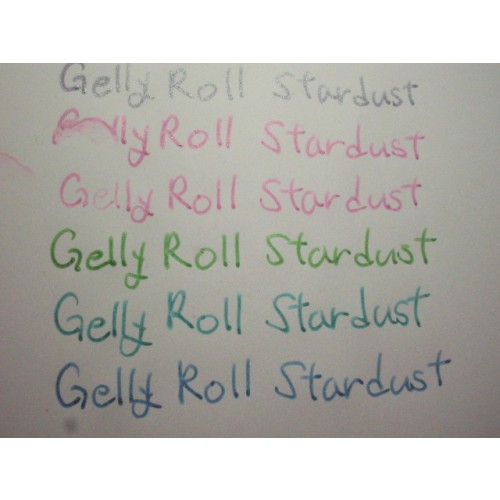 Gelly Roll Stardust
Roll Stardust
Gelly Roll Stardust
Gelly Roll Stardust
Gelly Roll Stardust
Gelly Roll Stardust